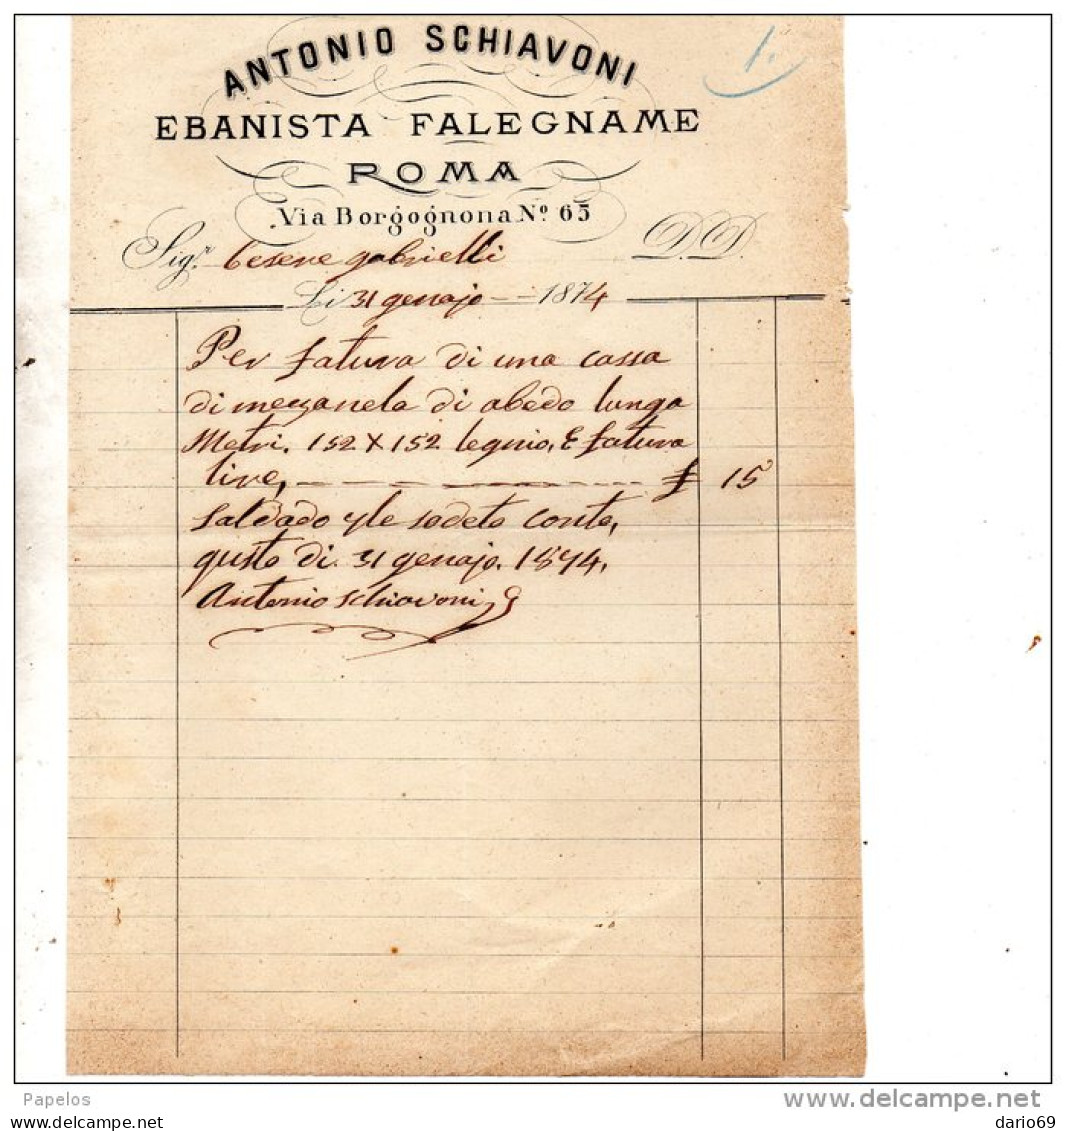 1.
ANTONIO SCHIAVONI
EBANISTA FALEGNAME
ROMA
Via Borgognona Nº 65
Sig.r Cesere gabrielli D.D.
Li 31 genajo 1874
Per fatura di una cassa
di mezzanela di abedo lunga
Metri. 152 X 152 legnio, E fatura
lire, £ 15
saldado sodeto conto,
questo di. 31 genajo. 1874,
Antonio Schiavoni
Papelos
www.delcampe.net
dario69